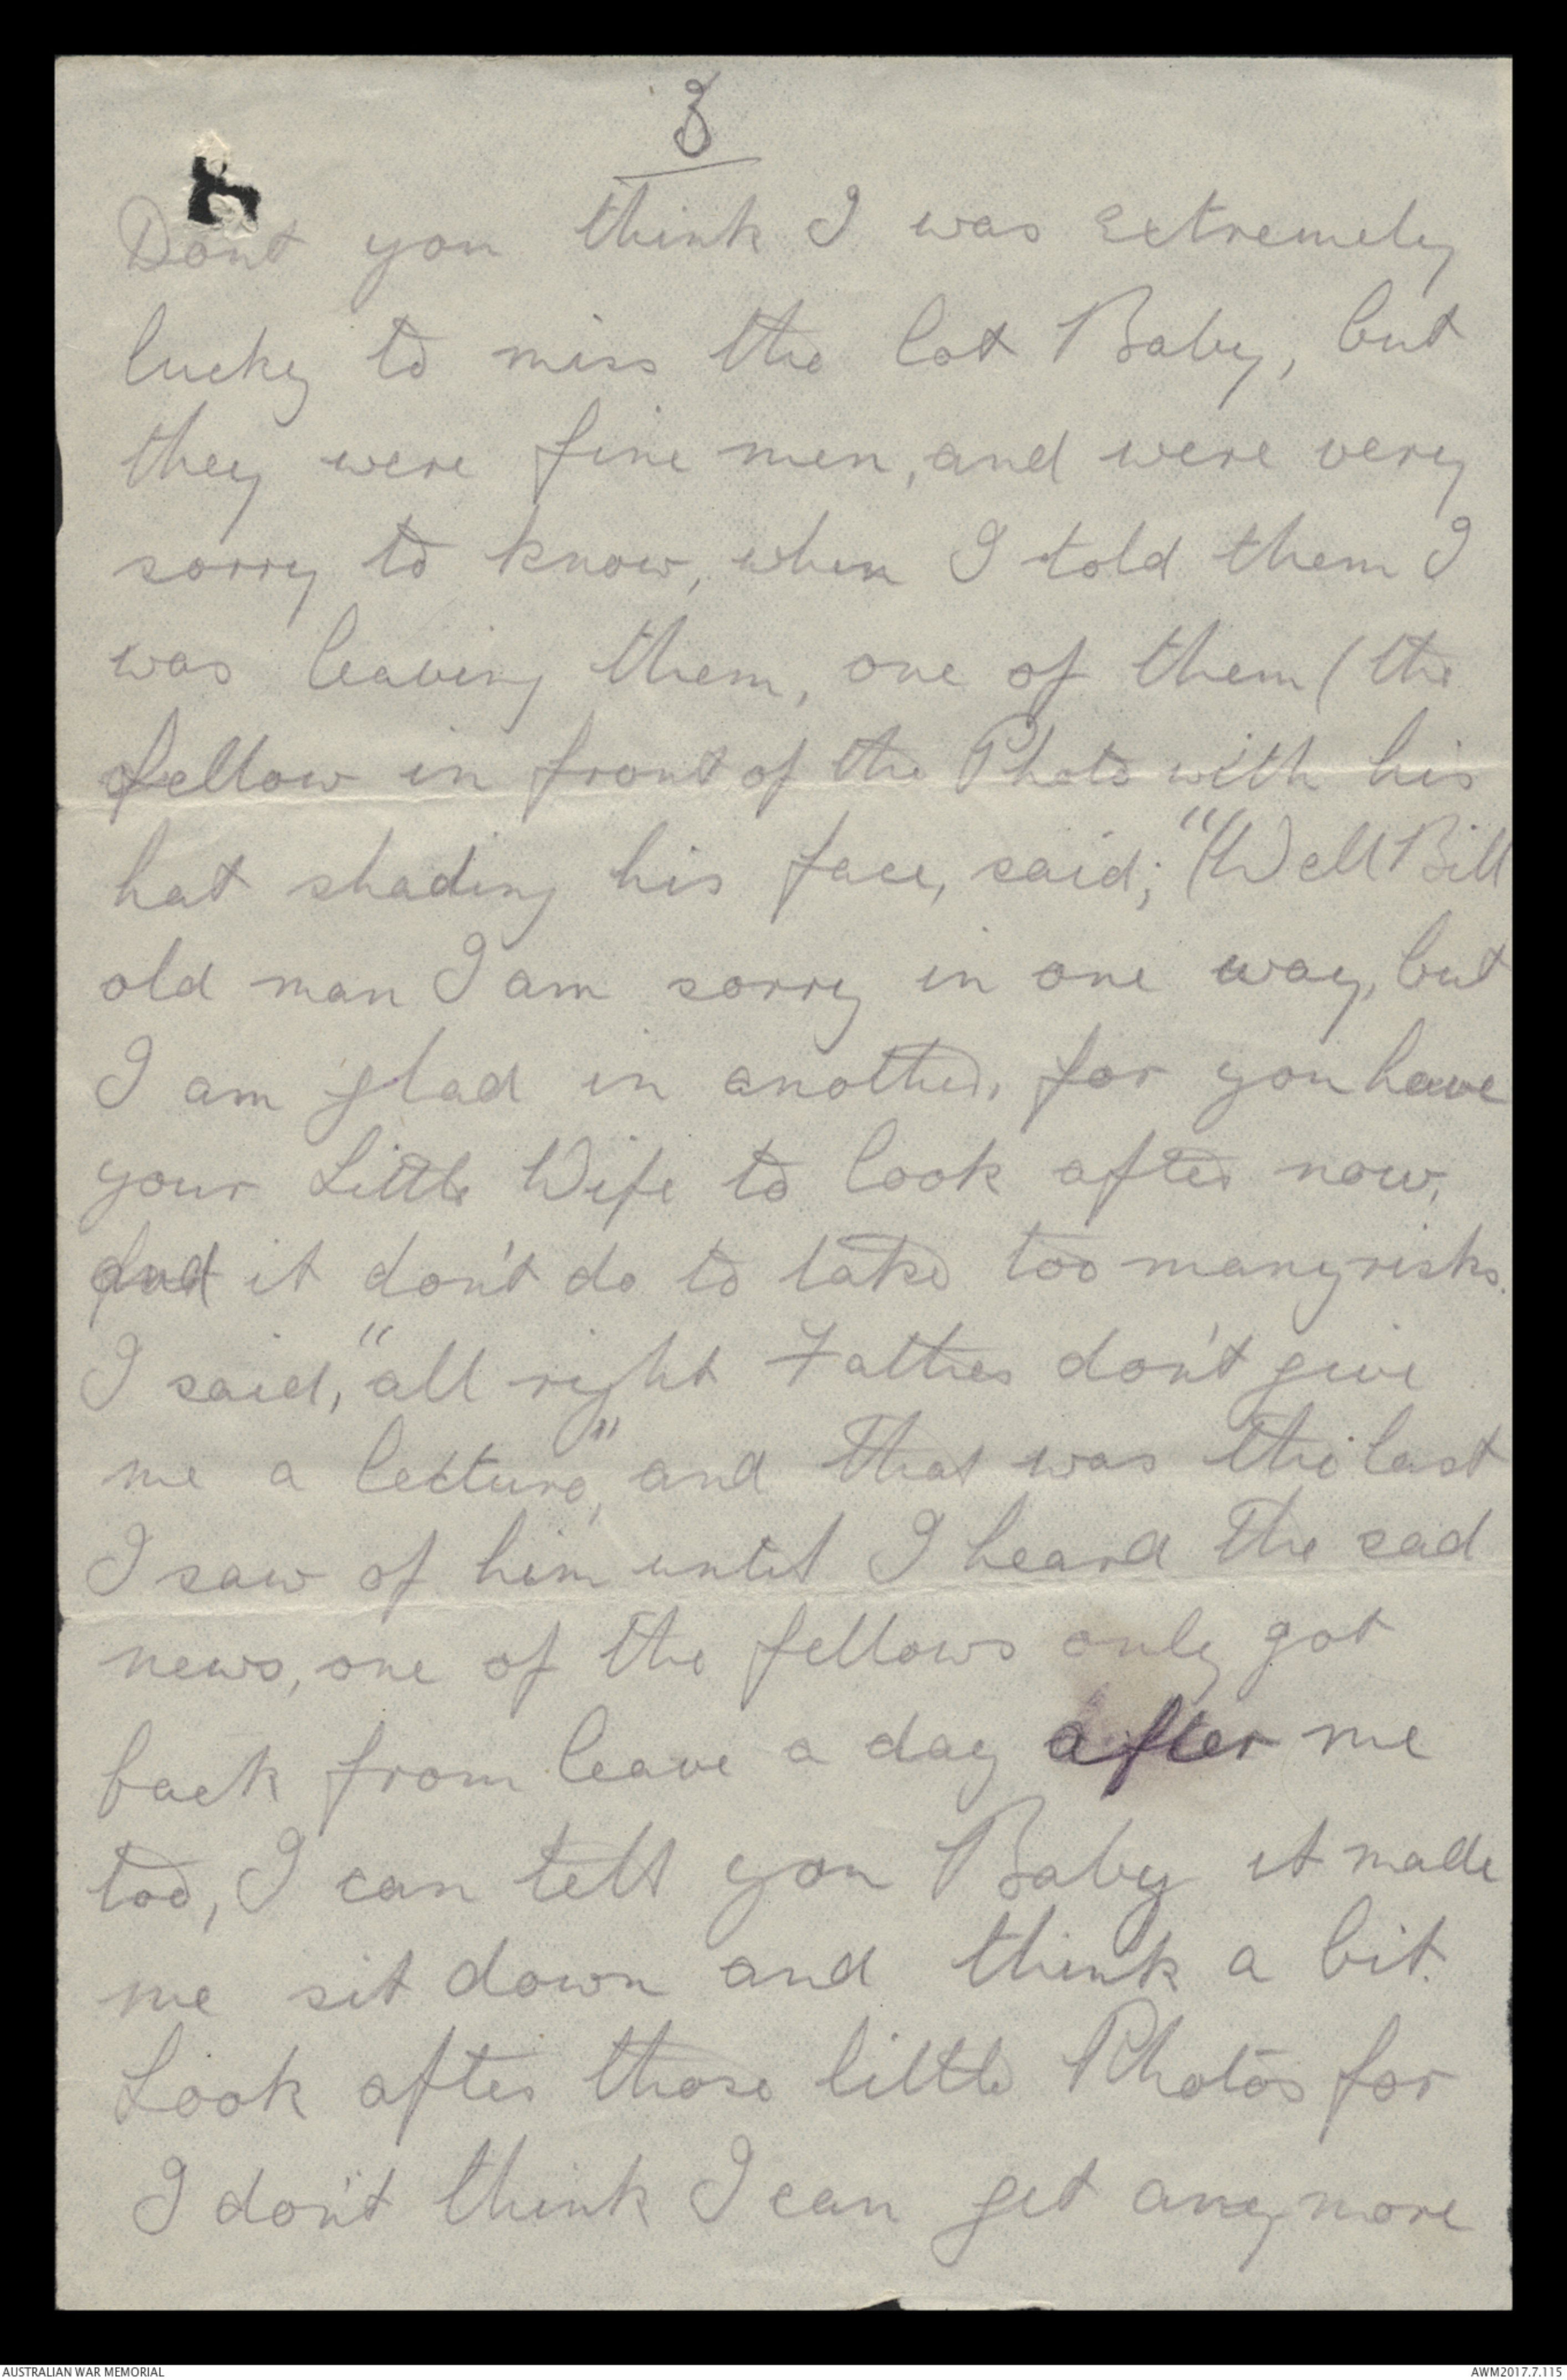 3
Don't you think I was extremely
lucky to miss the lot Baby, but
they were fine men, and were very
sorry to know, when I told them I
was leaving them, one of them (the
fellow in front of the Photo with his
hat shading his face, said; "Well Bill
old man I am sorry in one way, but
I am glad in another, for you have
your Little Wife to look after now,
and it don't do to take too many risks.
I said, "all right Father don't give
me a lecture," and that was the last
I saw of him until I heard the sad
news, one of the fellows only got
back from leave a day after me
too, I can tell you Baby it made
me sit down and think a bit.
Look after those little Photos for
I don't think I can get any more
AUSTRALIAN WAR MEMORIAL
AWM2017.7.115